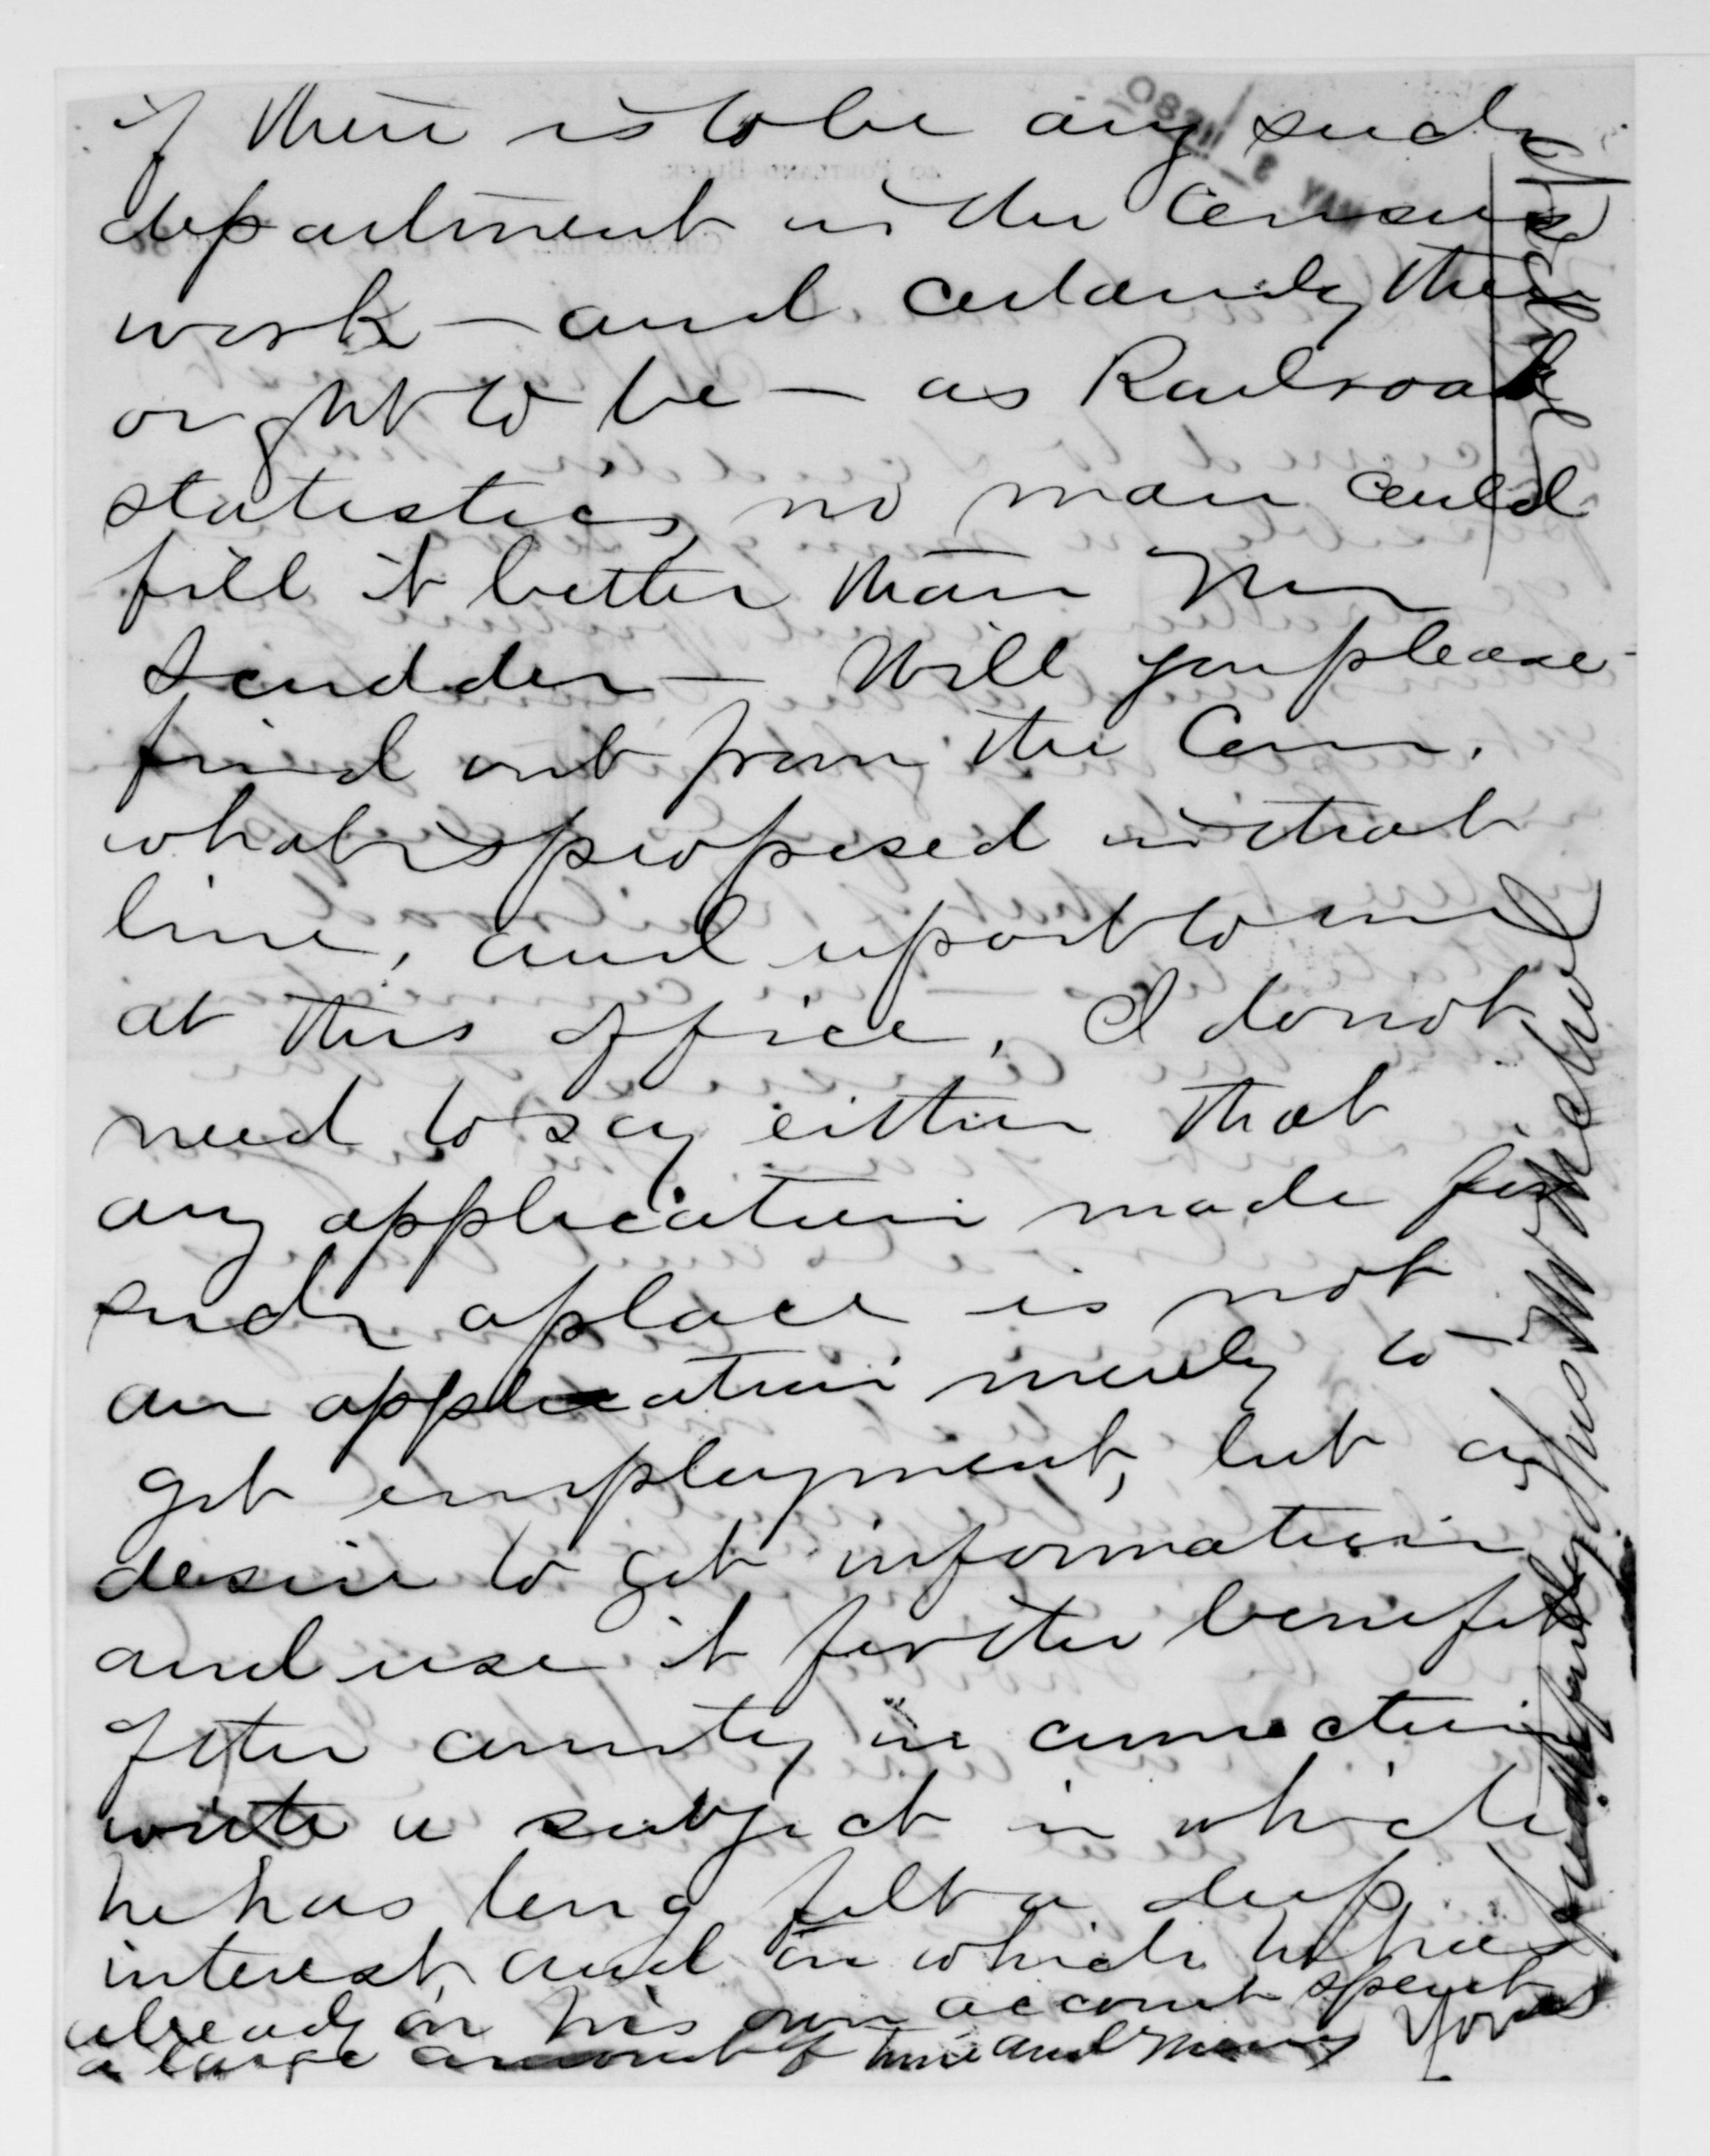 if there is to be any such
department in the Census
work — and certainly there
ought to be — as Railroad
statistics, no man could
fill it better than Mr
Scudder — Will you please
find out from the Com.
what is proposed in that
line, and report to me
at this office. I do not
need to say either that
any application made for
such a place is not
an application merely to
get employment, but a
desire to get information
and use it for the benefit
of the country in connection
with a subject in which
he has long felt a deep
interest, and in which he has
already on his own account spent
a large amount of time and money Yours